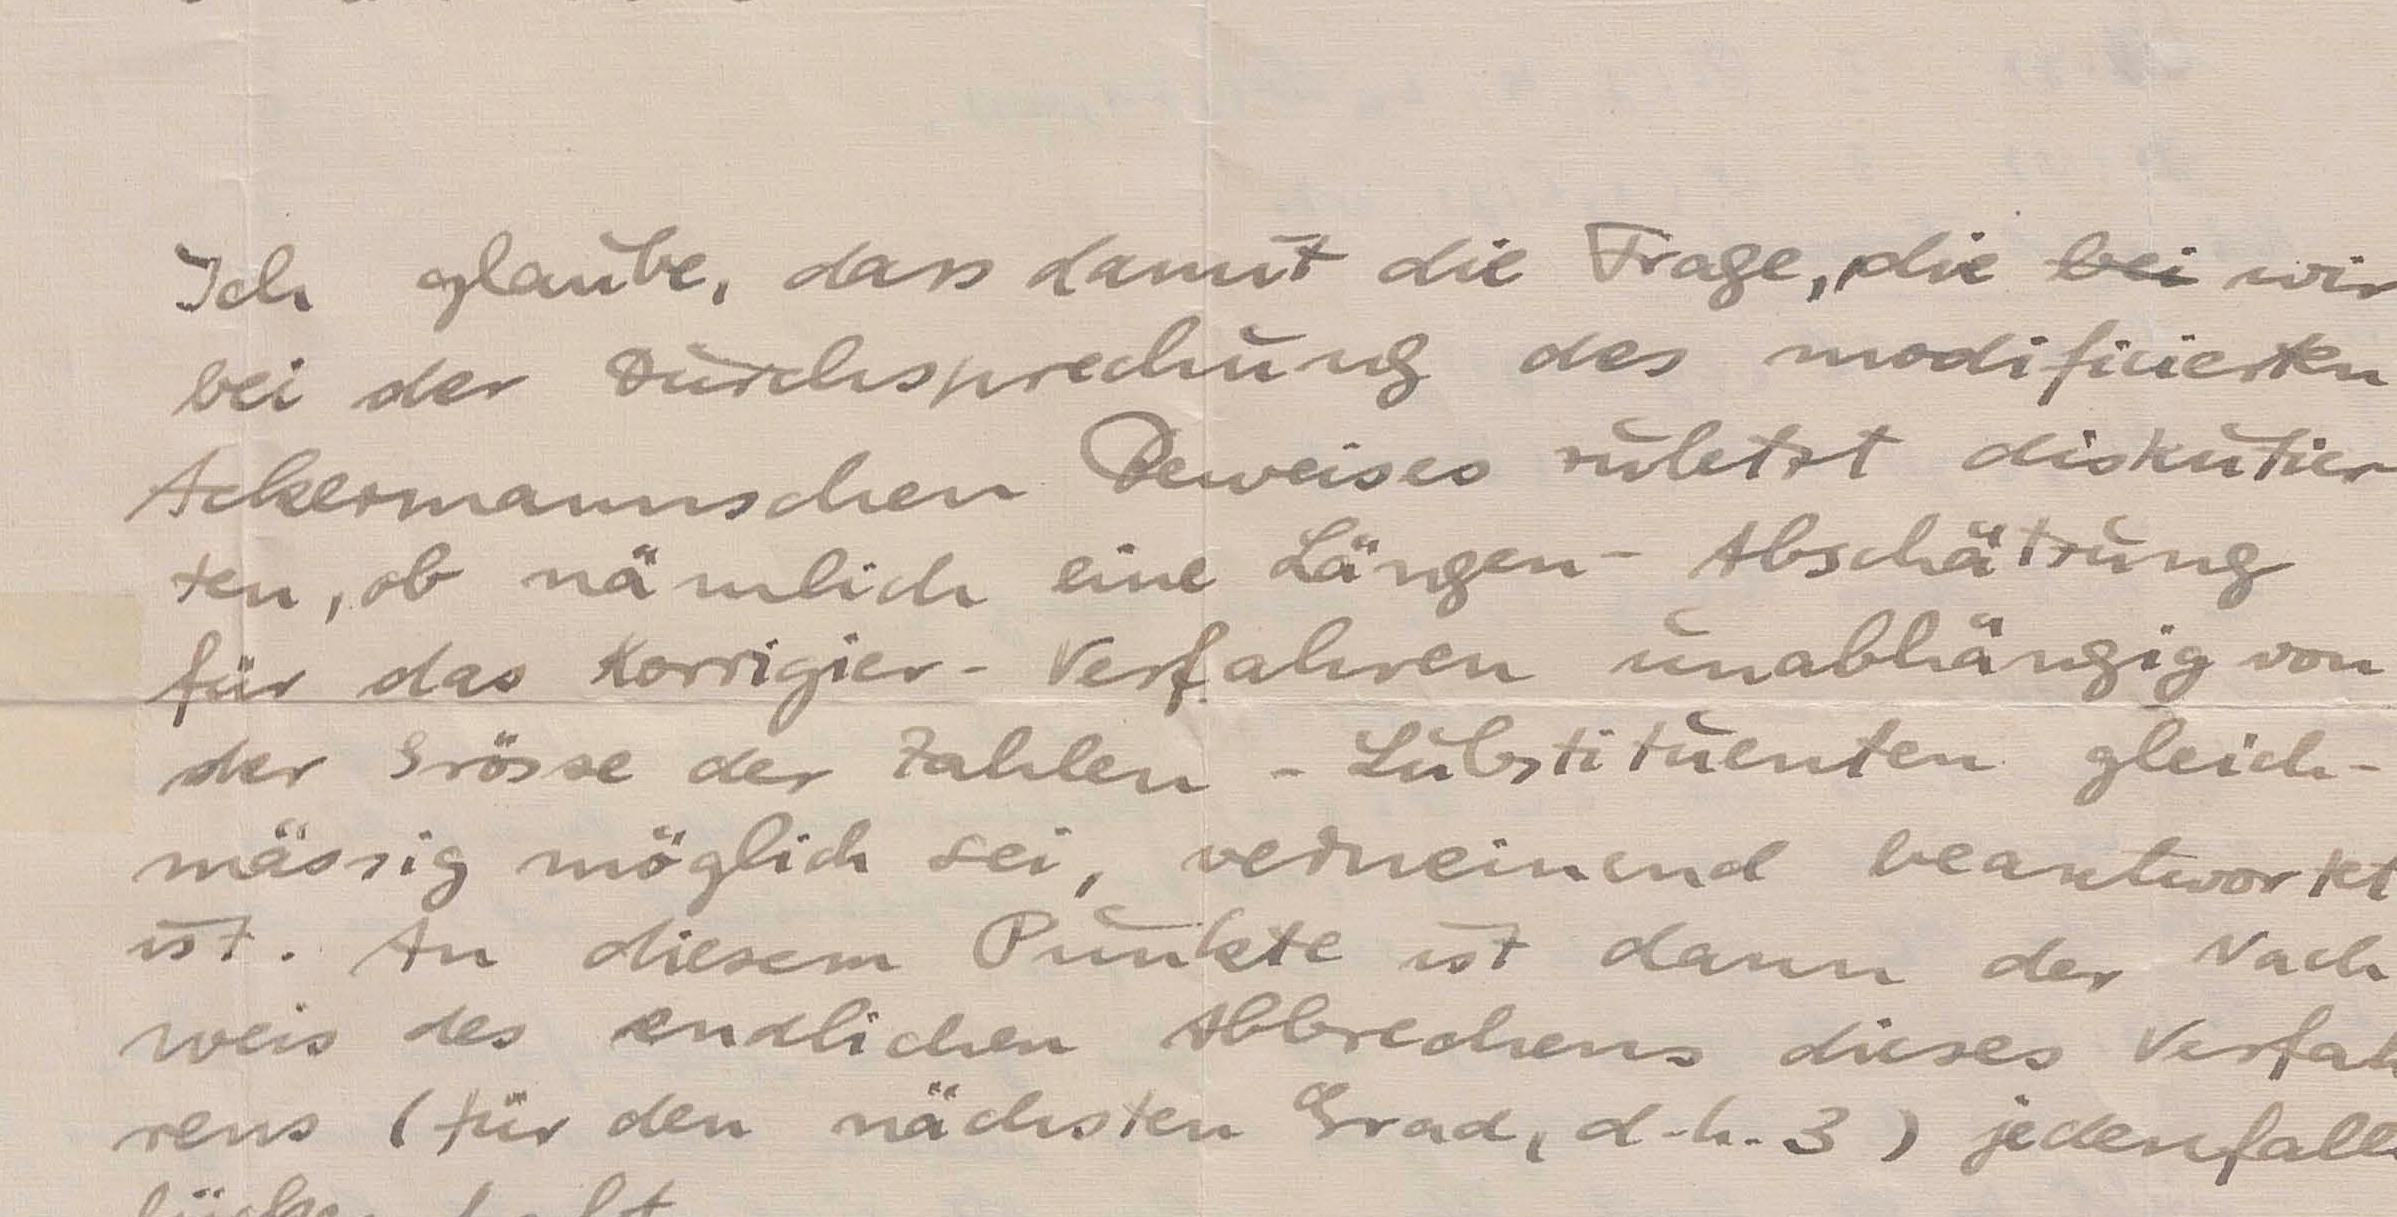 Ich glaube, dass damit die Frage, die bei wir
bei der Durchsprechung des modificierten
Ackermannschen Beweises zuletzt diskutier
ten, ob nämlich eine Längen- Abschätzung
für das Korrigier- Verfahren unabhängig von
der Grösse der Zahlen - Substituenten gleich-
mässig möglich sei, verneinend beantwortet
ist. An diesem Punkte ist dann der Nach
weis des endlichen Abbrechens dieses Verfah
rens (für den nächsten Grad, d.h. 3) jedenfalls